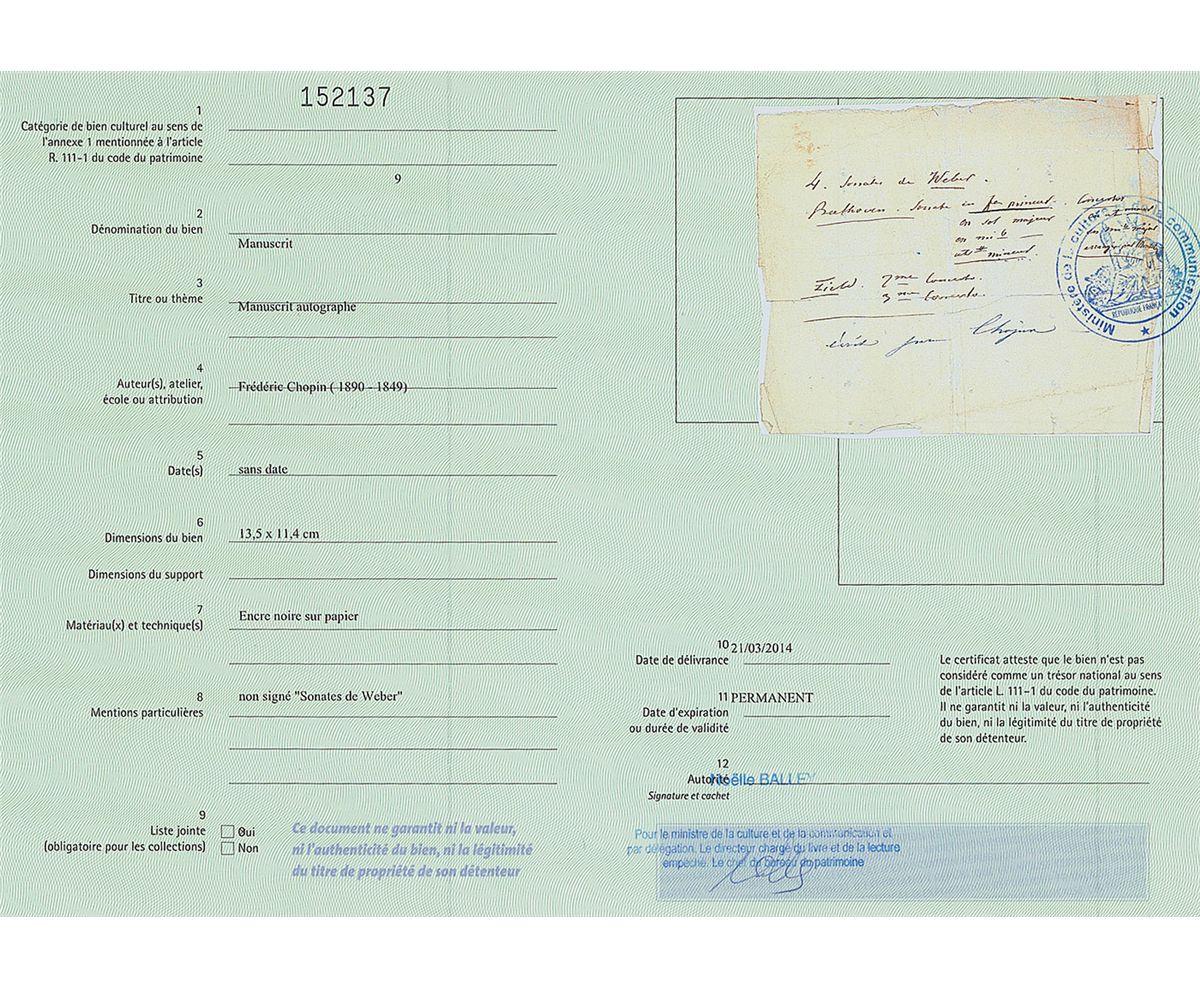 152137
1
Catégorie de bien culturel au sens de
l'annexe 1 mentionnée à l'article
R. 111-1 du code du patrimoine
9
2
Dénomination du bien
Manuscrit
3
Titre ou thème
Manuscrit autographe
4
Auteur(s), atelier,
école ou attribution
Frédéric Chopin ( 1890 - 1849)
5
Date(s)
sans date
6
Dimensions du bien
13,5 x 11,4 cm
Dimensions du support
7
Matériau(x) et technique(s)
Encre noire sur papier
8
Mentions particulières
non signé "Sonates de Weber"
9
Liste jointe
(obligatoire pour les collections)
Oui
Non
Ce document ne garantit ni la valeur,
ni l'authenticité du bien, ni la légitimité
du titre de propriété de son détenteur
4. Sonates de Weber.
Beethoven. Sonate en fa mineur. Concertos
en sol majeur
en mi b
ut # mineur.
Field. 7me Concerto.
3me Concerto.
écrit par Chopin
Ministère de la culture et de la communication
RÉPUBLIQUE FRANÇAISE
10
Date de délivrance
21/03/2014
11
Date d'expiration
ou durée de validité
PERMANENT
12
Autorité
Signature et cachet
Noëlle BALLEY
Le certificat atteste que le bien n'est pas
considéré comme un trésor national au sens
de l'article L. 111-1 du code du patrimoine.
Il ne garantit ni la valeur, ni l'authenticité
du bien, ni la légitimité du titre de propriété
de son détenteur.
Pour le ministre de la culture et de la communication et
par délégation. Le directeur chargé du livre et de la lecture
empêché. Le chef du bureau du patrimoine